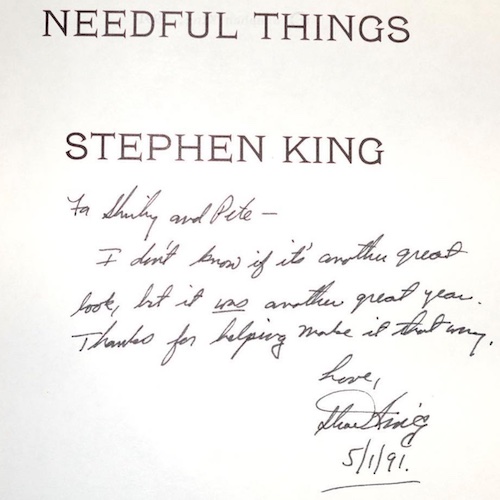 NEEDFUL THINGS
STEPHEN KING
To Shirley and Pete —
I don't know if it's another great
book, but it was another great year.
Thanks for helping make it that way.
Love,
Steve King
5/1/91.